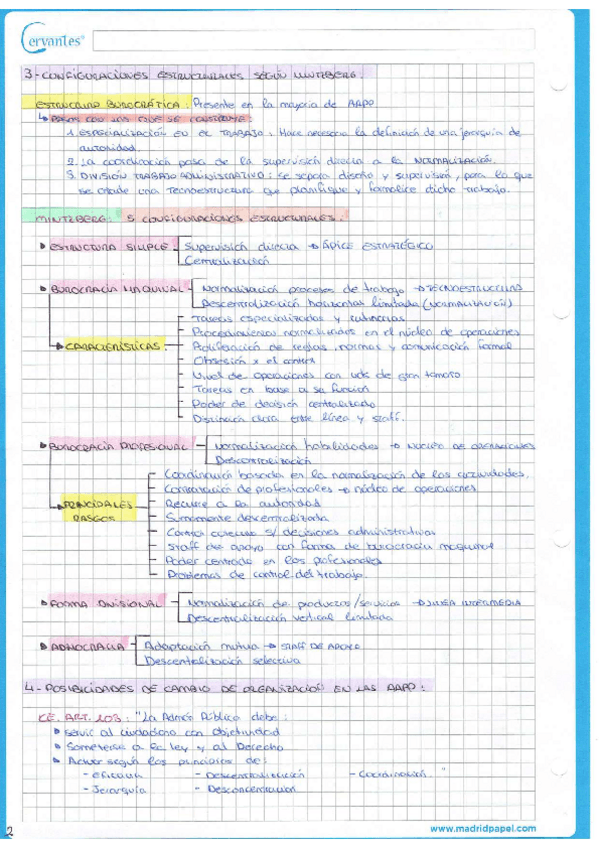 Cervantes®
3-CONFIGURACIONES ESTRUCTURALES SEGÚN MINTZBERG.
ESTRUCTURA BUROCRÁTICA: Presente en la mayoría de AAPP
↳ PASOS CON LOS QUE SE CONSTRUYE:
1. ESPECIALIZACIÓN EN EL TRABAJO: Hace necesaria la definición de una jerarquía de
autoridad.
2. La coordinación pasa de la supervisión directa a la NORMALIZACIÓN.
3. DIVISIÓN TRABAJO ADMINISTRATIVO: se separa diseño y supervisión, para lo que
se añade una Tecnoestructura que planifique y formalice dicho trabajo.
MINTZBERG: 5 CONFIGURACIONES ESTRUCTURALES.
ESTRUCTURA SIMPLE Supervisión directa → ÁPICE ESTRATÉGICO
Centralización
BUROCRACIA MAQUINAL Normalización procesos de trabajo → TECNOESTRUCTURA
Descentralización horizontal limitada (NORMALIZACIÓN)
Tareas especializadas y rutinarias
Procedimientos normalizados en el núcleo de operaciones
CARACTERÍSTICAS: Proliferación de reglas, normas y comunicación formal
Obsesión x el control
Nivel de operaciones con uds de gran tamaño
Tareas en base a se función
Poder de decisión centralizado
Distinción clara entre línea y staff.
BUROCRACIA PROFESIONAL Normalización habilidades → NÚCLEO DE OPERACIONES
Descentralización
Coordinación basada en la normalización de las actividades.
Contratación de profesionales → núcleo de operaciones
PRINCIPALES RASGOS Recurre a la autoridad
Sumamente descentralizada
Control s/ decisiones administrativas
Staff de apoyo con forma de burocracia maquinal
Poder centrado en los profesionales
Problemas de control del trabajo.
FORMA DIVISIONAL Normalización de productos/servicios → LÍNEA INTERMEDIA
Descentralización vertical limitada
ADHOCRACIA Adaptación mutua → STAFF DE APOYO
Descentralización selectiva
4-POSIBILIDADES DE CAMBIO DE ORGANIZACIÓN EN LAS AAPP:
CE. ART. 103: "La Admón Pública debe:
Servir al ciudadano con objetividad
Someterse a la ley y al Derecho
Actuar según los principios de:
- Eficacia - Descentralización - Coordinación."
- Jerarquía - Desconcentración
2
www.madridpapel.com